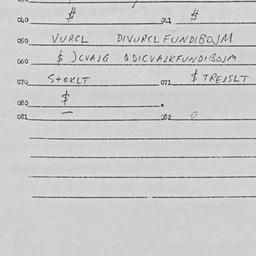 040 $ 041 $
050 VURCL DIVURCLFUNDIBOJM
060 $ )CVAJG DDICVAJKFUNDIBOJM
070 S+OKLT 071 $ TREJSLT
080 $
081 — 082 0